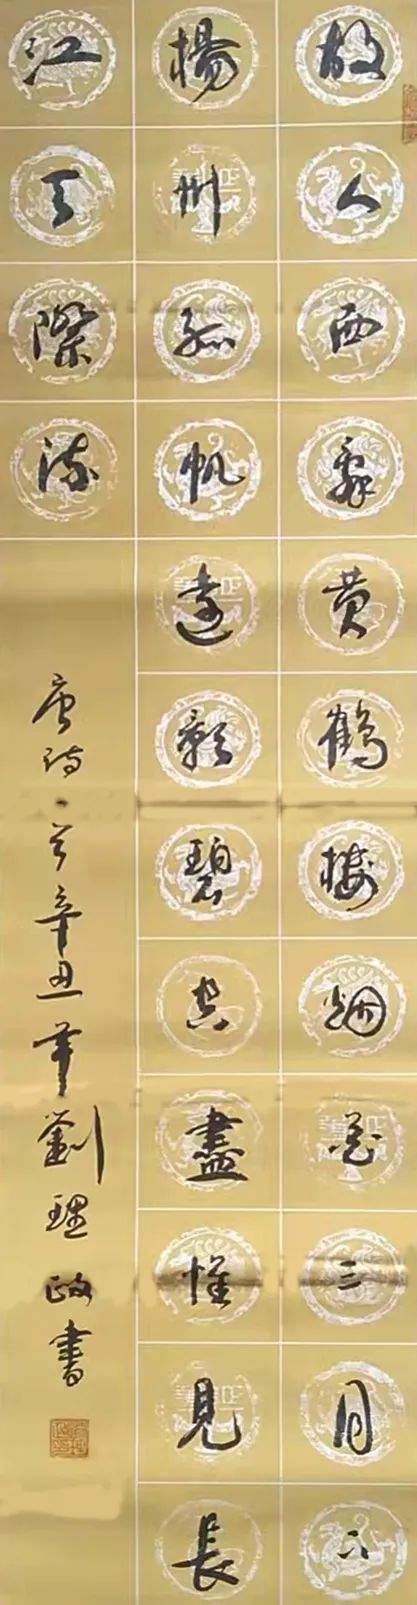 故人西辭黄鶴樓烟花三月下
楊州孤帆遠影碧空盡惟見長
江天際流
唐詩 辛丑年劉理政書